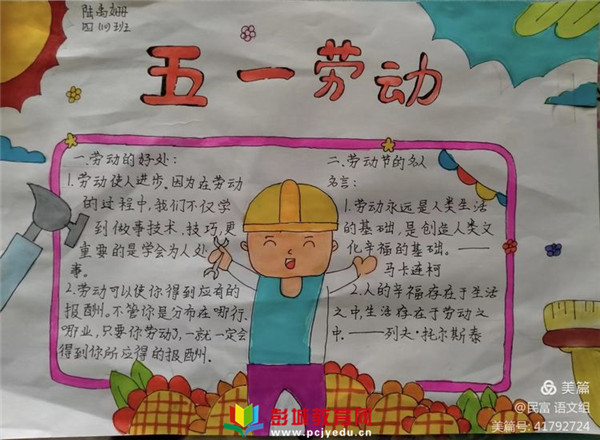 陆禹姗
四(1)班
五一劳动
一、劳动的好处:
1.劳动使人进步。因为在劳动
的过程中,我们不仅学
到做事技术、技巧,更
重要的是学会为人处
事。
2.劳动可以使你得到应有的
报酬。不管你是分布在哪行.
哪业,只要你劳动了,一就一定会
得到你所应得的报酬。
二、劳动节的名人
名言:
1.劳动永远是人类生活
的基础,是创造人类文
化幸福的基础。——
马卡连柯
2.人的幸福存在于生活
之中,生活存在于劳动之
中.——列夫·托尔斯泰
彭城教育网
www.pcjyedu.cn
美篇
@民富 语文组
美篇号:41792724